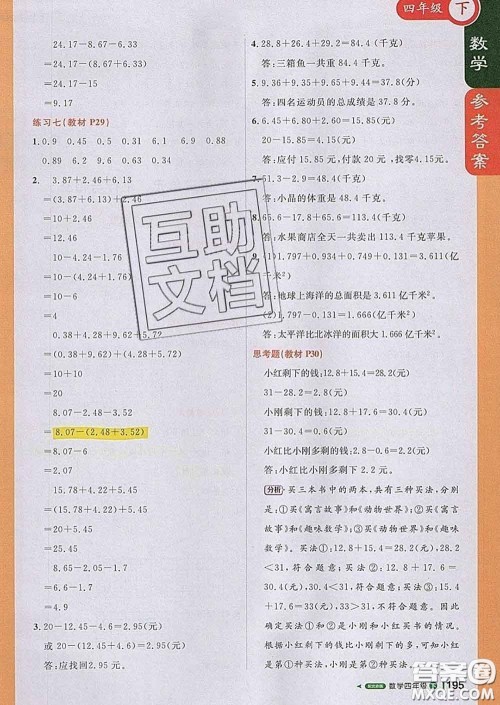 四年级 下
数学
参考答案
24.17-8.07-6.33
=24.17-(8.07+6.93)
=24.17-15
=9.17
练习七(教材 P29)
1.0.9 0.45 0.5 0.91 0.38 0.18
0.89 6.2 9.6 0.3 0.63
2. 3.87+2.46+6.13
=(3.87+6.13)+2.46
=10+2.46
=12.46
=10-6
=4
0.38+4.29+9.62+5.71
=(0.38+9.62)+(4.29+5.71)
=10+10
=20
8.07-2.48-3.52
=8.07-(2.48+3.52)
=8.07-6
=2.07
15.78+4.22+5.45
=(15.78+4.22)+5.45
=20+5.45
=25.45
8.65-2.05-1.7
=6.6-1.7
=4.9
3.20-12.45-4.6=2.95(元)
或 20-(12.45+4.6)=2.95(元)
答:应找回 2.95 元。
4.28.8+26.4+29.2=84.4(千克)
答:三箱鱼一共重 84.4 千克。
5.9.55+9.46+9.37+9.42=37.8(分)
答:四名运动员的总成绩是 37.8 分。
6.6.45+6.80+2.60=15.85(元)
20-15.85=4.15(元)
答:应付 15.85 元,付款 20 元,找回 4.15 元。
答:小晶的体重是 48.5 千克。
答:水果商店全天一共卖出 113.4 千克苹果。
答:地球上海洋的总面积是 3.611 亿千米²。
(2)1.797-0.131=1.666(亿千米²)
答:太平洋比北冰洋的面积大 1.666 亿千米²。
思考题(教材 P30)
小红剩下的钱:12.8+15.4=28.2(元)
31-28.2=2.8(元)
小刚剩下的钱:12.8+17.6=30.4(元)
31-30.4=0.6(元)
小红比小刚多剩的钱:2.8-0.6=2.2(元)
答:小红比小刚多剩 2.2 元。
分析 买三本书中的两本,共有三种买法,分别
是:①买《寓言故事》和《动物世界》;②买《寓言
故事》和《趣味数学》;③买《动物世界》和《趣味
数学》。买法①:12.8+15.4=28.2(元),28.2
<31,符合题意;买法②:12.8+17.6=
30.4(元),30.4<31,符合题意;买法③:
15.4+17.6=33(元),33>31,不符合题意。因
此,可以确定买法①和买法②符合题意。再
根据小红剩的钱比小刚多可知,小红的买法
是买法①,小刚的买法是买法②。
数学四年级 下 1195
互助
文档
答案圈